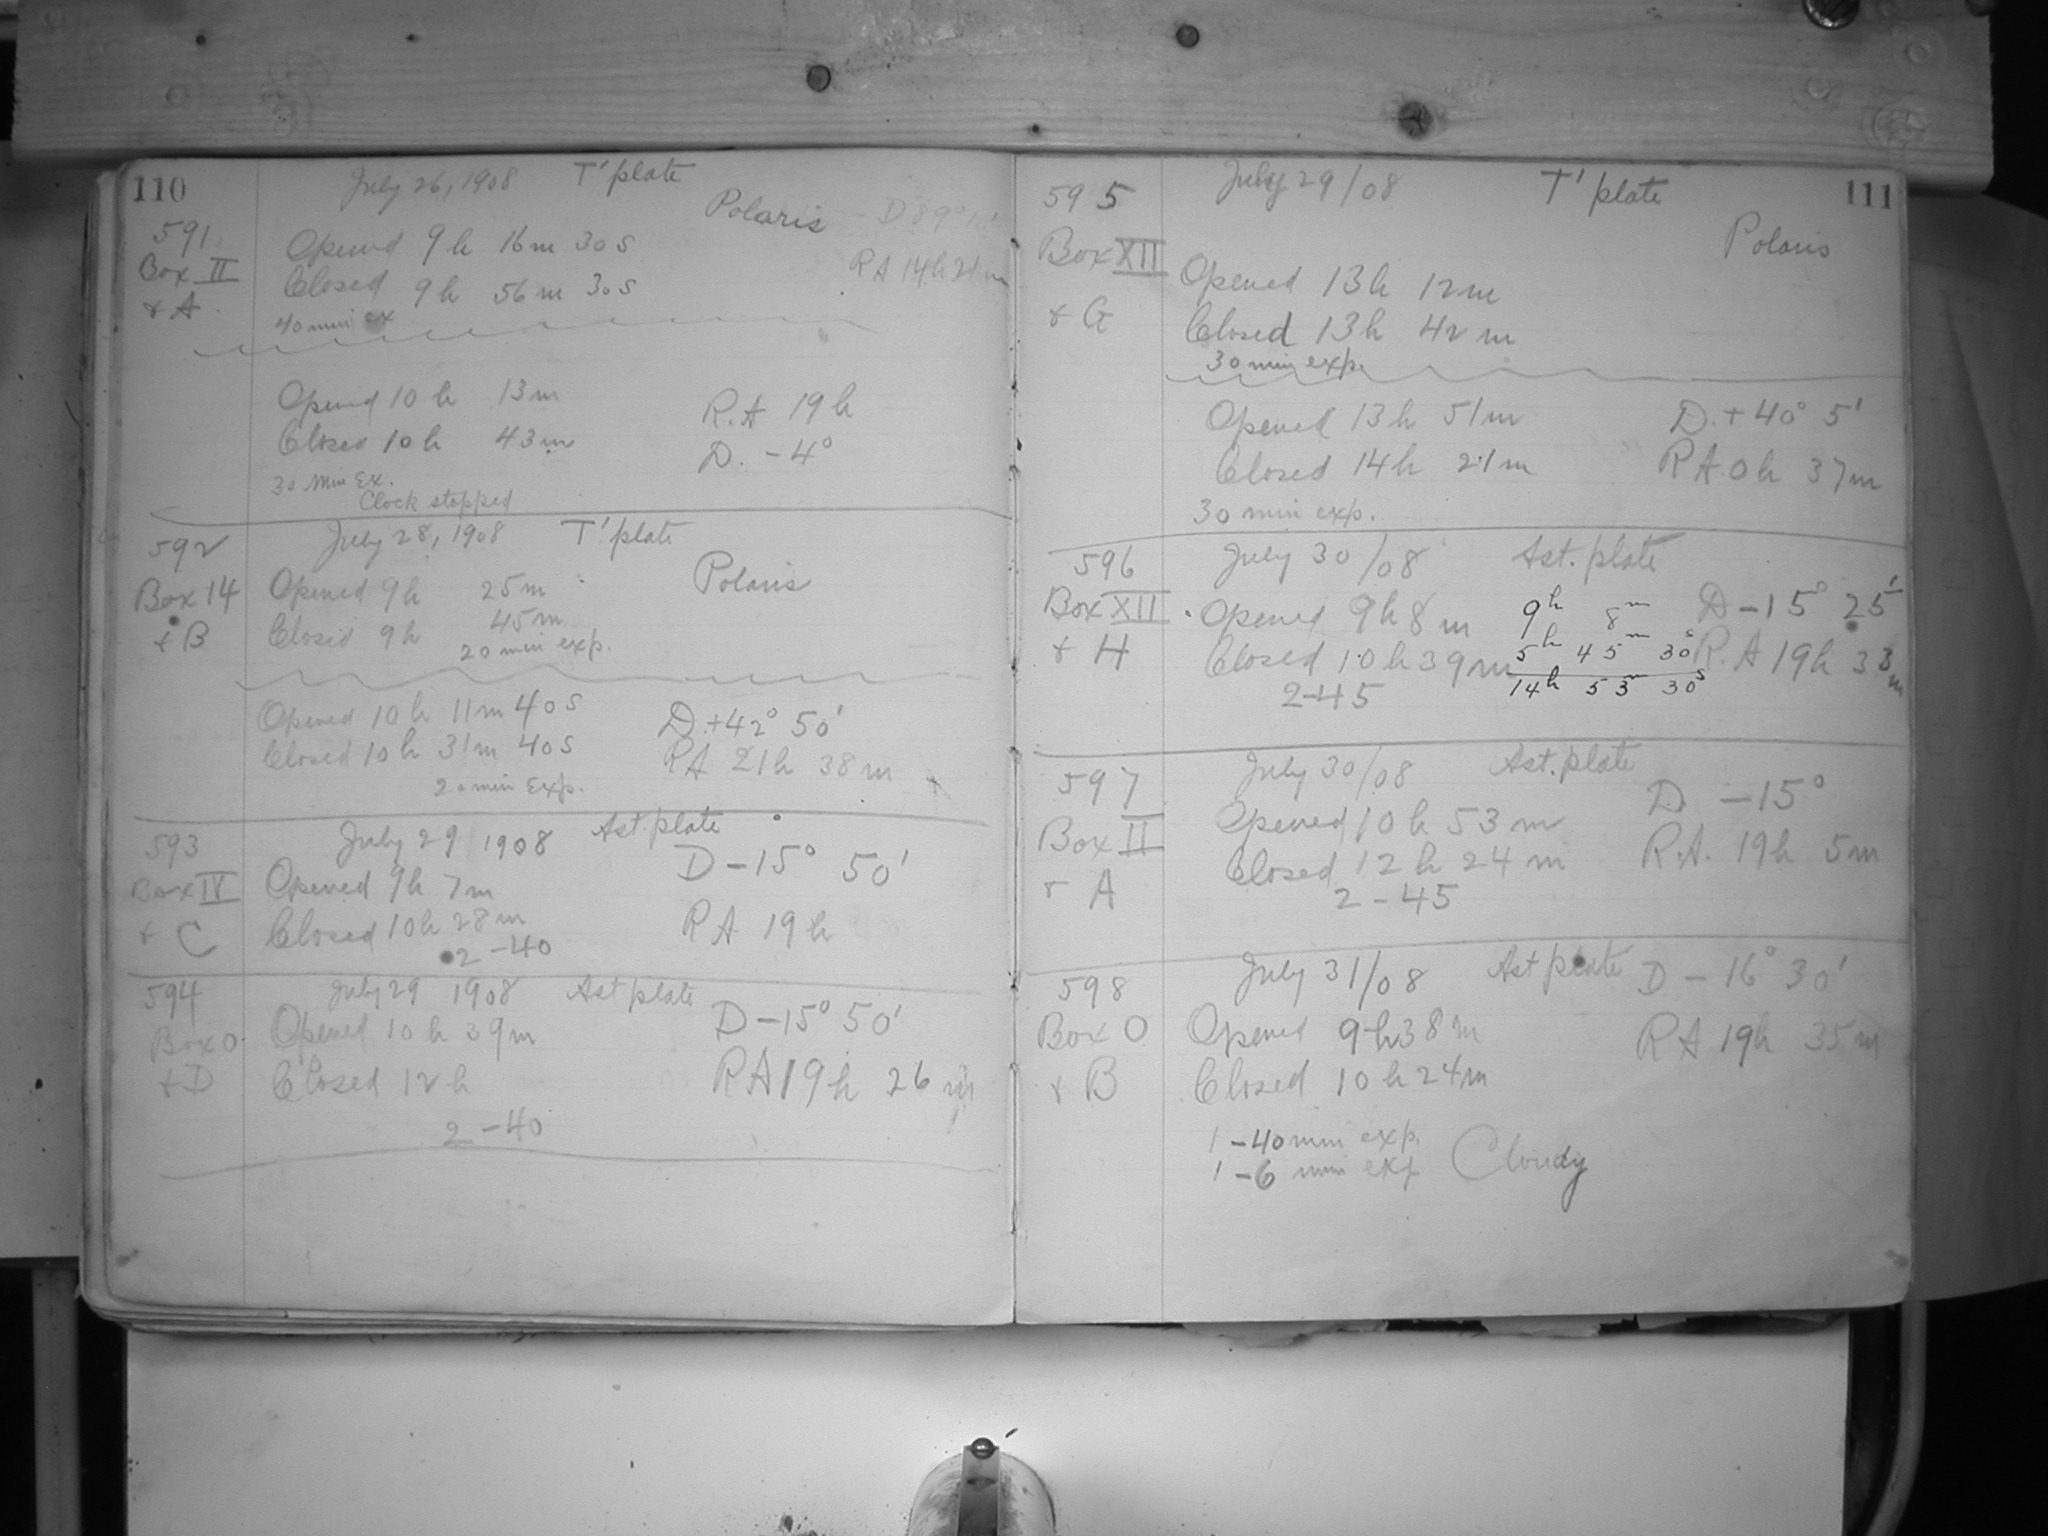 110
July 26, 1908 T' plate
591
Box II
+ A
Polaris
D 89°
RA 14h 21m
Opened 9h 16m 30s
Closed 9h 56m 30s
40 min ex
Opened 10h 13m R.A 19h
Closed 10h 43m D. -4°
30 Min Ex.
Clock stopped
592
July 28, 1908 T' plate
Box 14
+ B
Opened 9h 25m Polaris
Closed 9h 45m
20 min exp.
Opened 10h 11m 40s D. +42° 50'
Closed 10h 31m 40s RA 21h 38m
20 min Exp.
593
July 29 1908 Ast. plate
Box IV
+ C
Opened 9h 7m D -15° 50'
Closed 10h 28m RA 19h
2 -40
594
July 29 1908 Ast plate
Box O
+ D
Opened 10h 39m D -15° 50'
Closed 12h RA 19h 26m
2 -40
111
595
July 29/08 T' plate
Box XII
+ G
Polaris
Opened 13h 12m
Closed 13h 42m
30 min exp.
Opened 13h 51m D. +40° 5'
Closed 14h 21m RA. 0h 37m
30 min exp.
596
July 30/08 Ast. plate
Box XII
+ H
Opened 9h 8m 9h 8m D -15° 25'
Closed 10h 39m 5h 45m 30s R.A 19h 33m
2-45 14h 53m 30s
597
July 30/08 Ast. plate
Box II
+ A
Opened 10h 53m D. -15°
Closed 12h 24m R.A. 19h 5m
2 -45
598
July 31/08 Ast plate D -16° 30'
Box O
+ B
Opened 9h 38m RA 19h 35m
Closed 10h 24m
1 -40 min exp.
1 -6 min exp Cloudy